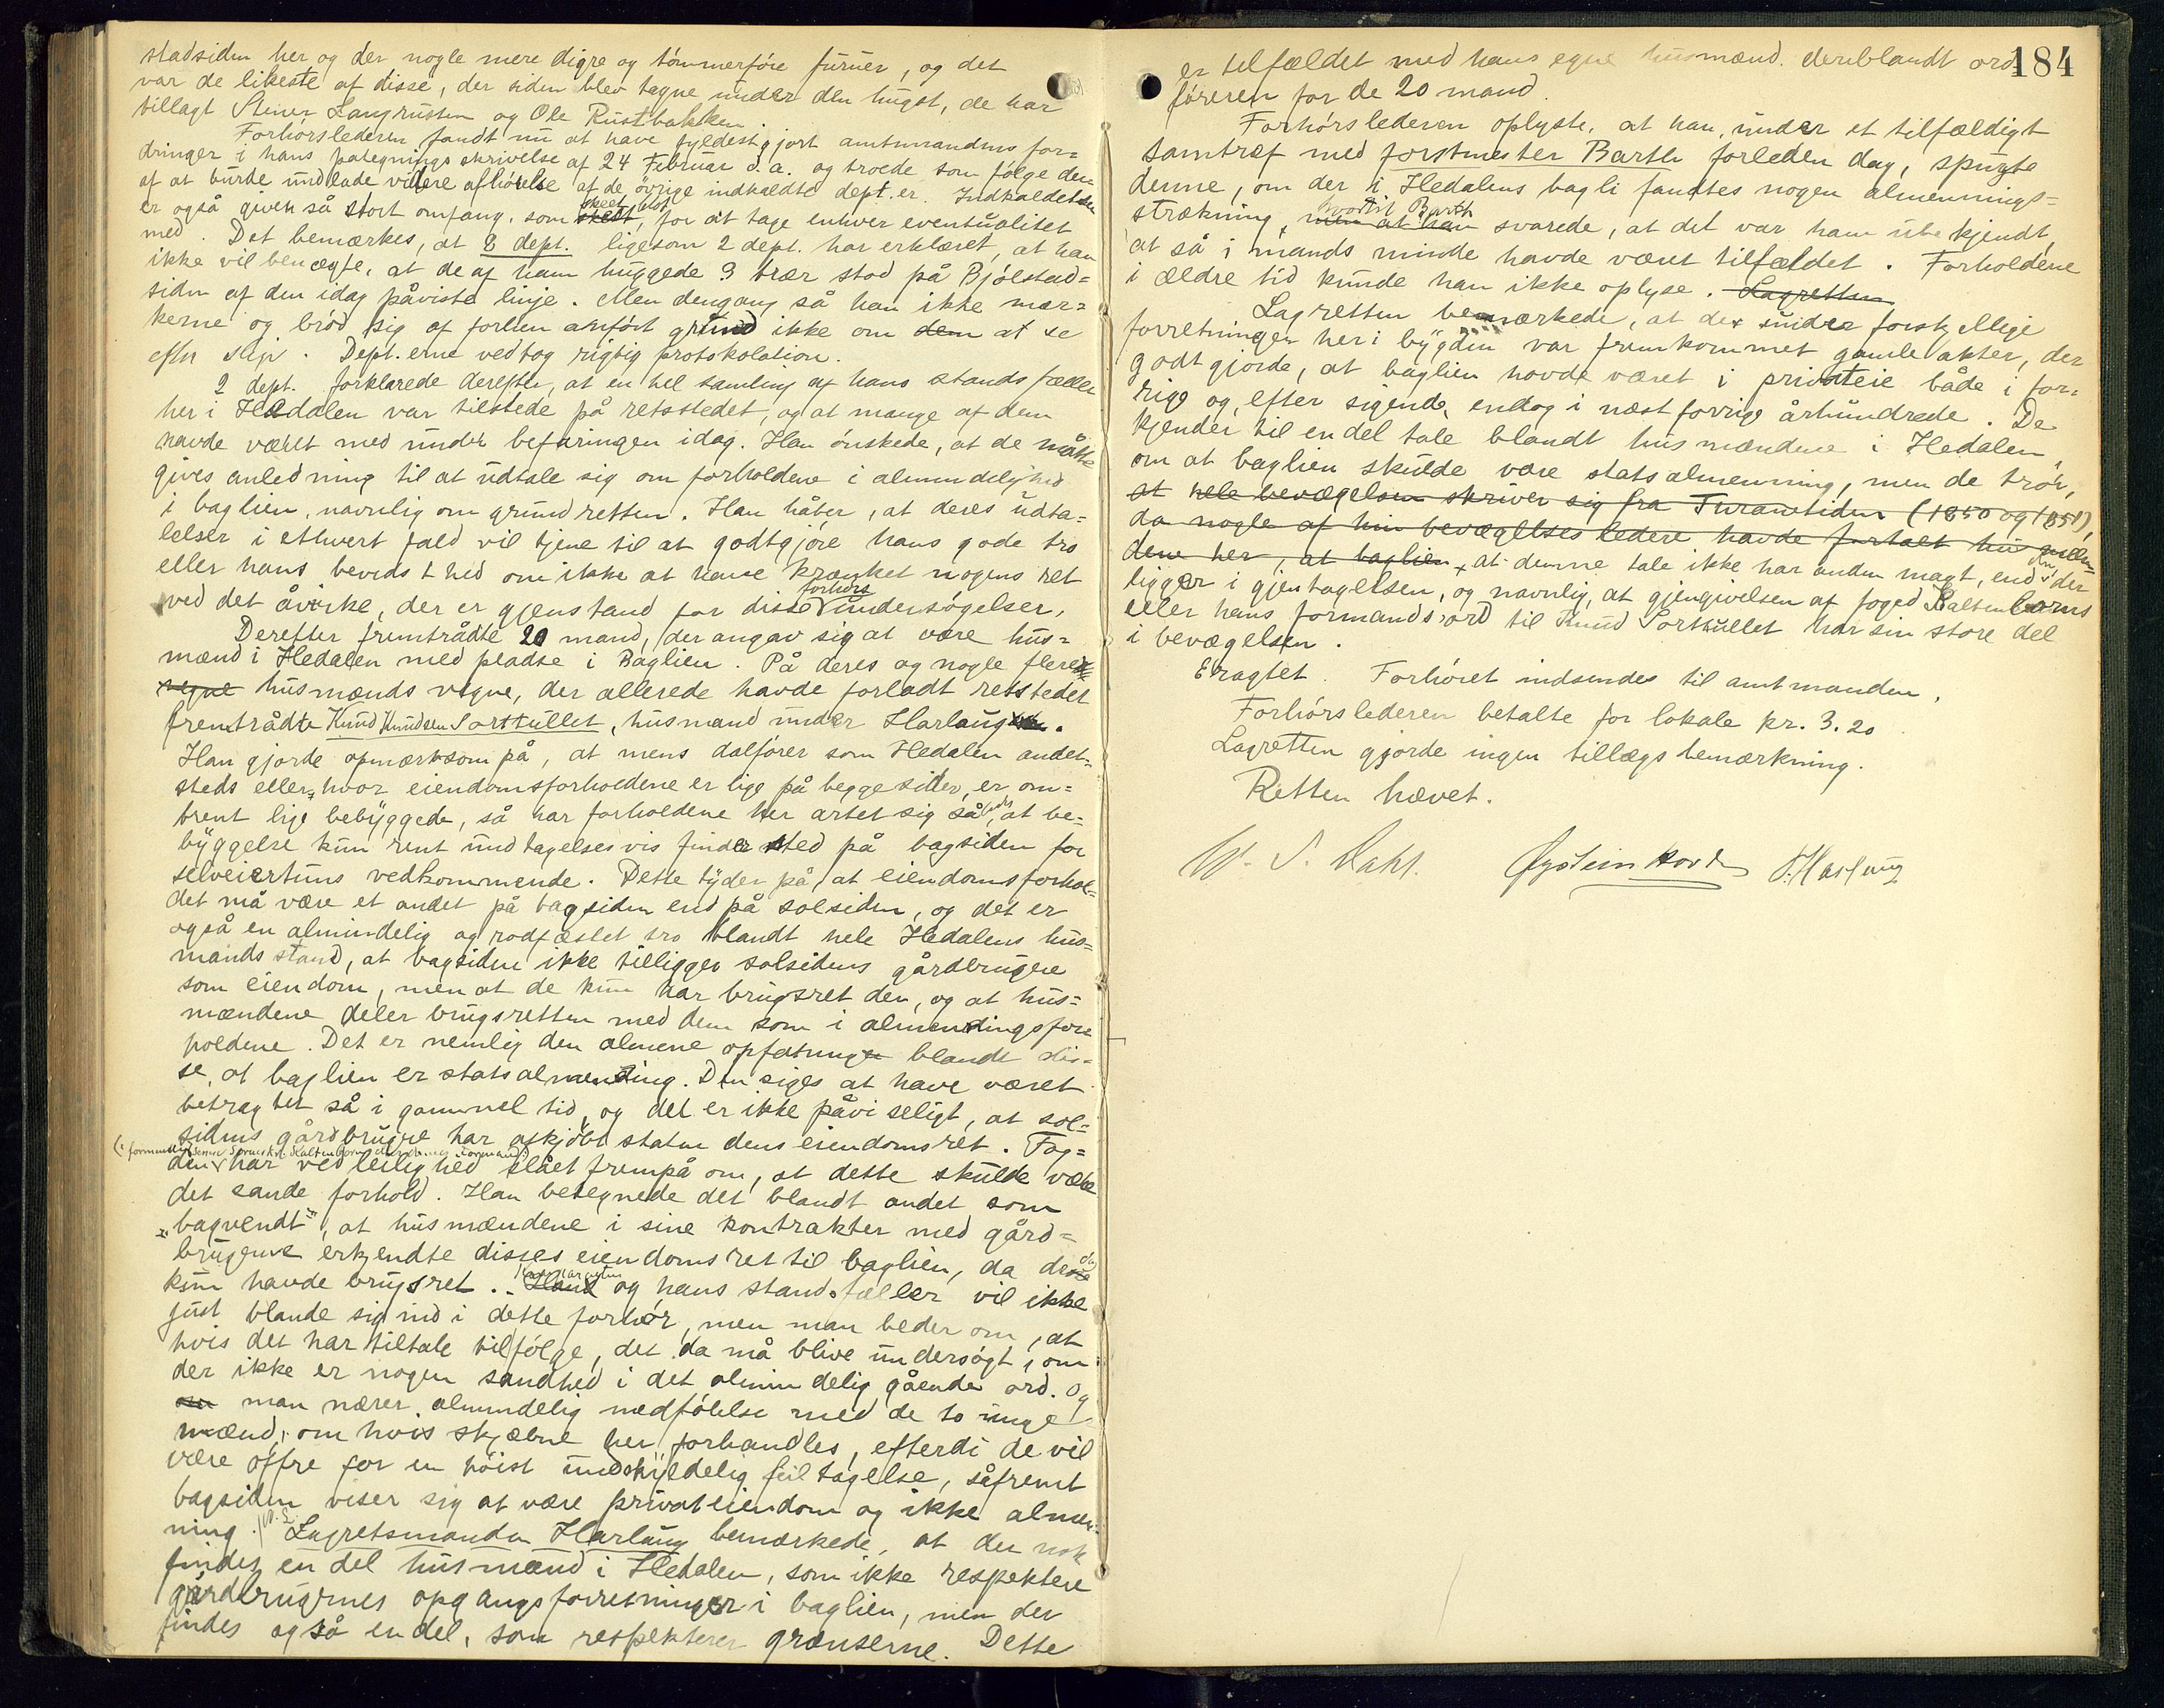 stadsiden her og der nogle mere digre og tømmerføre furuer, og det
var de likeste af disse, der siden blev tagne under den hugst, de har
tillagt Steiner Langrusten og Ole Rustbakken.
Forhørslederen fandt nu at have fyldestgjort amtmandens for=
dringer i hans påtegningsskrivelse af 24 Februar d.a. og troede som følge der=
af at burde undlade videre afhørelse af de øvrige indkaldte dept.er. Indkaldelsen
er også given så stort omfang, som skeet blot for at tage enhver eventualitet
med. Det bemærkes, at 8 dept. ligesom 2 dept. har erklæret, at han
ikke vil benægte, at de af ham huggede 3 trær stod på Bjølstad=
siden af den idag påviste linje. Men dengang så han ikke mær=
kerne og brød sig af forhen anført grund ikke om dem at se
efter slige. Dept.erne vedtog rigtig protokolation.
2 dept. forklarede derefter, at en hel samling af hans standsfæller
her i Hedalen var tilstede på retsstedet, og at mange af dem
havde været med under befaringen idag. Han ønskede, at de måtte
gives anledning til at udtale sig om forholdene i almindelighed
i baglien, navnlig om grundretten. Han håber, at deres udta=
lelser i ethvert fald vil tjene til at godtgjøre hans gode tro
eller hans bevidsthed om ikke at have krænket nogens ret
ved det åvirke, der er gjenstand for disse forhørs undersøgelser.
Derefter fremtrådte 20 mand, der angav sig at være hus=
mænd i Hedalen med pladse i Baglien. På deres og nogle flere
vegne husmænds vegne, der allerede havde forladt retsstedet
fremtrådte Knud Knudsen Sortkullet, husmand under Harlaug.
Han gjorde opmærksom på, at mens dalfører som Hedalen andet=
steds eller, hvor eiendomsforholdene er lige på begge sider, er om=
trent lige bebyggede, så har forholdene her artet sig så, at be=
byggelse kun rent undtagelsesvis finder sted på bagsiden for
selveiertuns vedkommende. Dette tyder på, at eiendomsforhol=
det må være et andet på bagsiden end på solsiden, og det er
også en almindelig og rodfæstet tro blandt hele Hedalens hus=
mands stand, at bagsiden ikke tilligger solsidens gårdbrugere
som eiendom, men at de kun har brugsret der, og at hus=
mændene deler brugsretten med dem som i almendingsfor
holdene. Det er nemlig den almene opfatning blandt dis=
se, at baglien er statsalmending. Den siges at have været
betragtet så i gammel tid, og det er ikke påviseligt, at sol=
sidens gårdbrugere har afkjøbt staten dens eiendomsret. Fog=
den har ved leilighed slået frempå om, at dette skulde være
det sande forhold. Han betegnede det blandt andet som
"bagvendt", at husmændene i sine kontrakter med gård=
brugerne erkjendte disses eiendomsret til baglien, da disse
kun havde brugsret. Han og hans standsfæller vil ikke
just blande sig ind i dette forhør, men man beder om, at
hvis det har tiltale tilfølge, det da må blive undersøgt, om
der ikke er nogen sandhed i det almindelig gående ord. Og
man nærer almindelig medfølelse med de to unge
mænd, om hvis skjæbne her forhandles, efterdi de vil
være offre for en høist undskyldelig feiltagelse, såfremt
bagsiden viser sig at være privateiendom og ikke almen=
ning. Lagretsmanden Harlaug bemærkede, at der nok
findes en del husmænd i Hedalen, som ikke respektere
gårdbrugernes opgangsforretninger i baglien, men der
findes også en del, som respekterer grænserne. Dette
184
er tilfældet med hans egne husmænd. deriblandt ord
føreren for de 20 mand.
Forhørslederen oplyste, at han, under et tilfældigt
samtræf med forstmester Barth forleden dag, spurgte
denne, om der i Hedalens bagli fandtes nogen almennings=
strækning, men at han hvortil Barth svarede, at det var ham ubekjendt,
at så i mands minde havde været tilfældet. Forholdene
i ældre tid kunde han ikke oplyse. Lagretten
Lagretten bemærkede, at der under forskjellige
forretninger her i bygden var fremkommet gamle akter, der
godtgjorde, at baglien havde været i privateie både i for=
rige og, efter sigende, endog i næst forrige århundrede. De
kjender til en del tale blandt husmændene i Hedalen
om at baglien skulde være statsalmenning, men de tror,
at hele bevægelsen skriver sig fra Tranetiden (1850 og 1851),
da nogle af hin bevægelses ledere havde fortalt husmæn=
dene her, at baglien, at denne tale ikke har anden magt, end den, der
ligger i gjentagelsen, og navnlig, at gjengivelsen af foged Kaltenborns
eller hans formands ord til Knud Sortkullet har sin store del
i bevægelsen.
Eragtet. Forhøret indsendes til amtmanden.
Forhørslederen betalte for lokale kr. 3.20
Lagretten gjorde ingen tillægsbemærkning.
Retten hævet.
W. S. Dahl. Øystein Hovde J. Harlaug